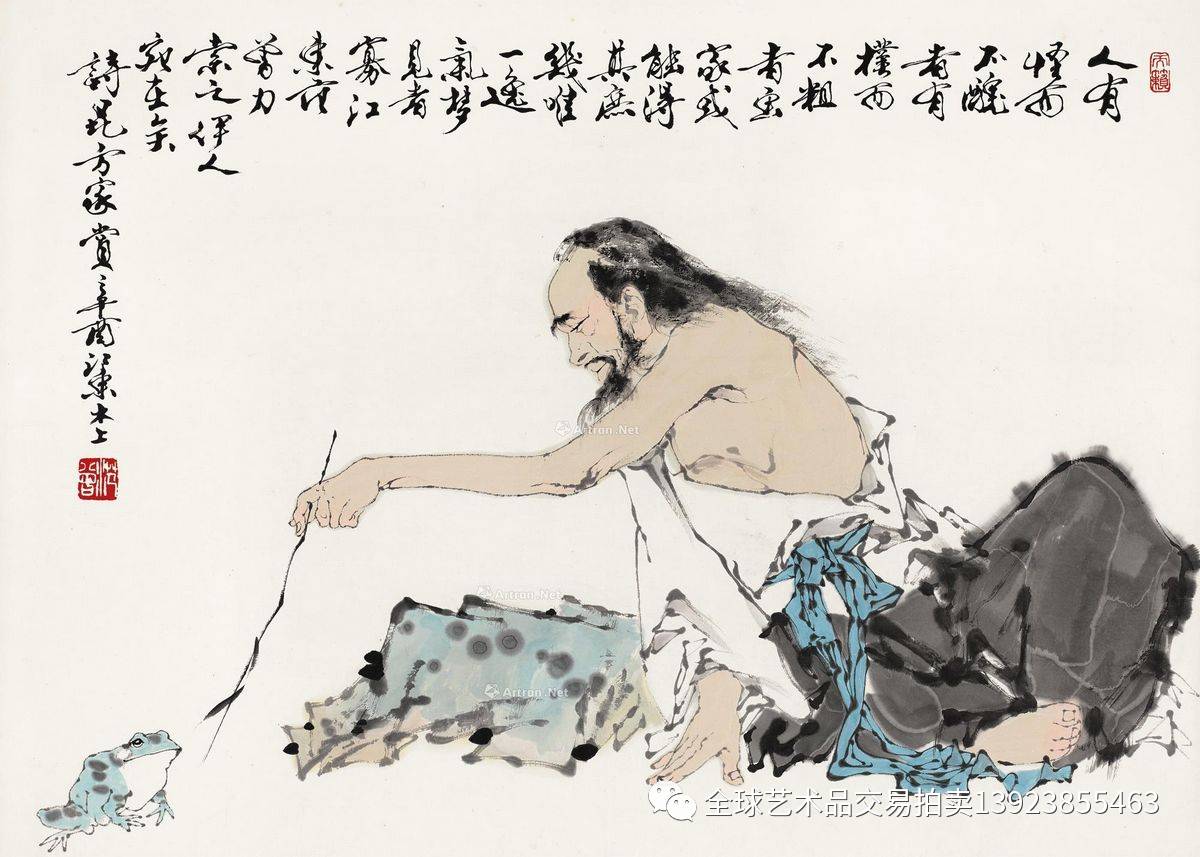 人有
怪而
不醜
者有
樸而
不粗
者畫
家或
能得
其庶
幾唯
一逸
氣梦
見者
寡江
東范
曾力
索之伊人
宛在矣
詩昆方家賞辛酉江東
范曾
Artron.Net
Artron.Net
Artron.Net
全球艺术品交易拍卖13923855463